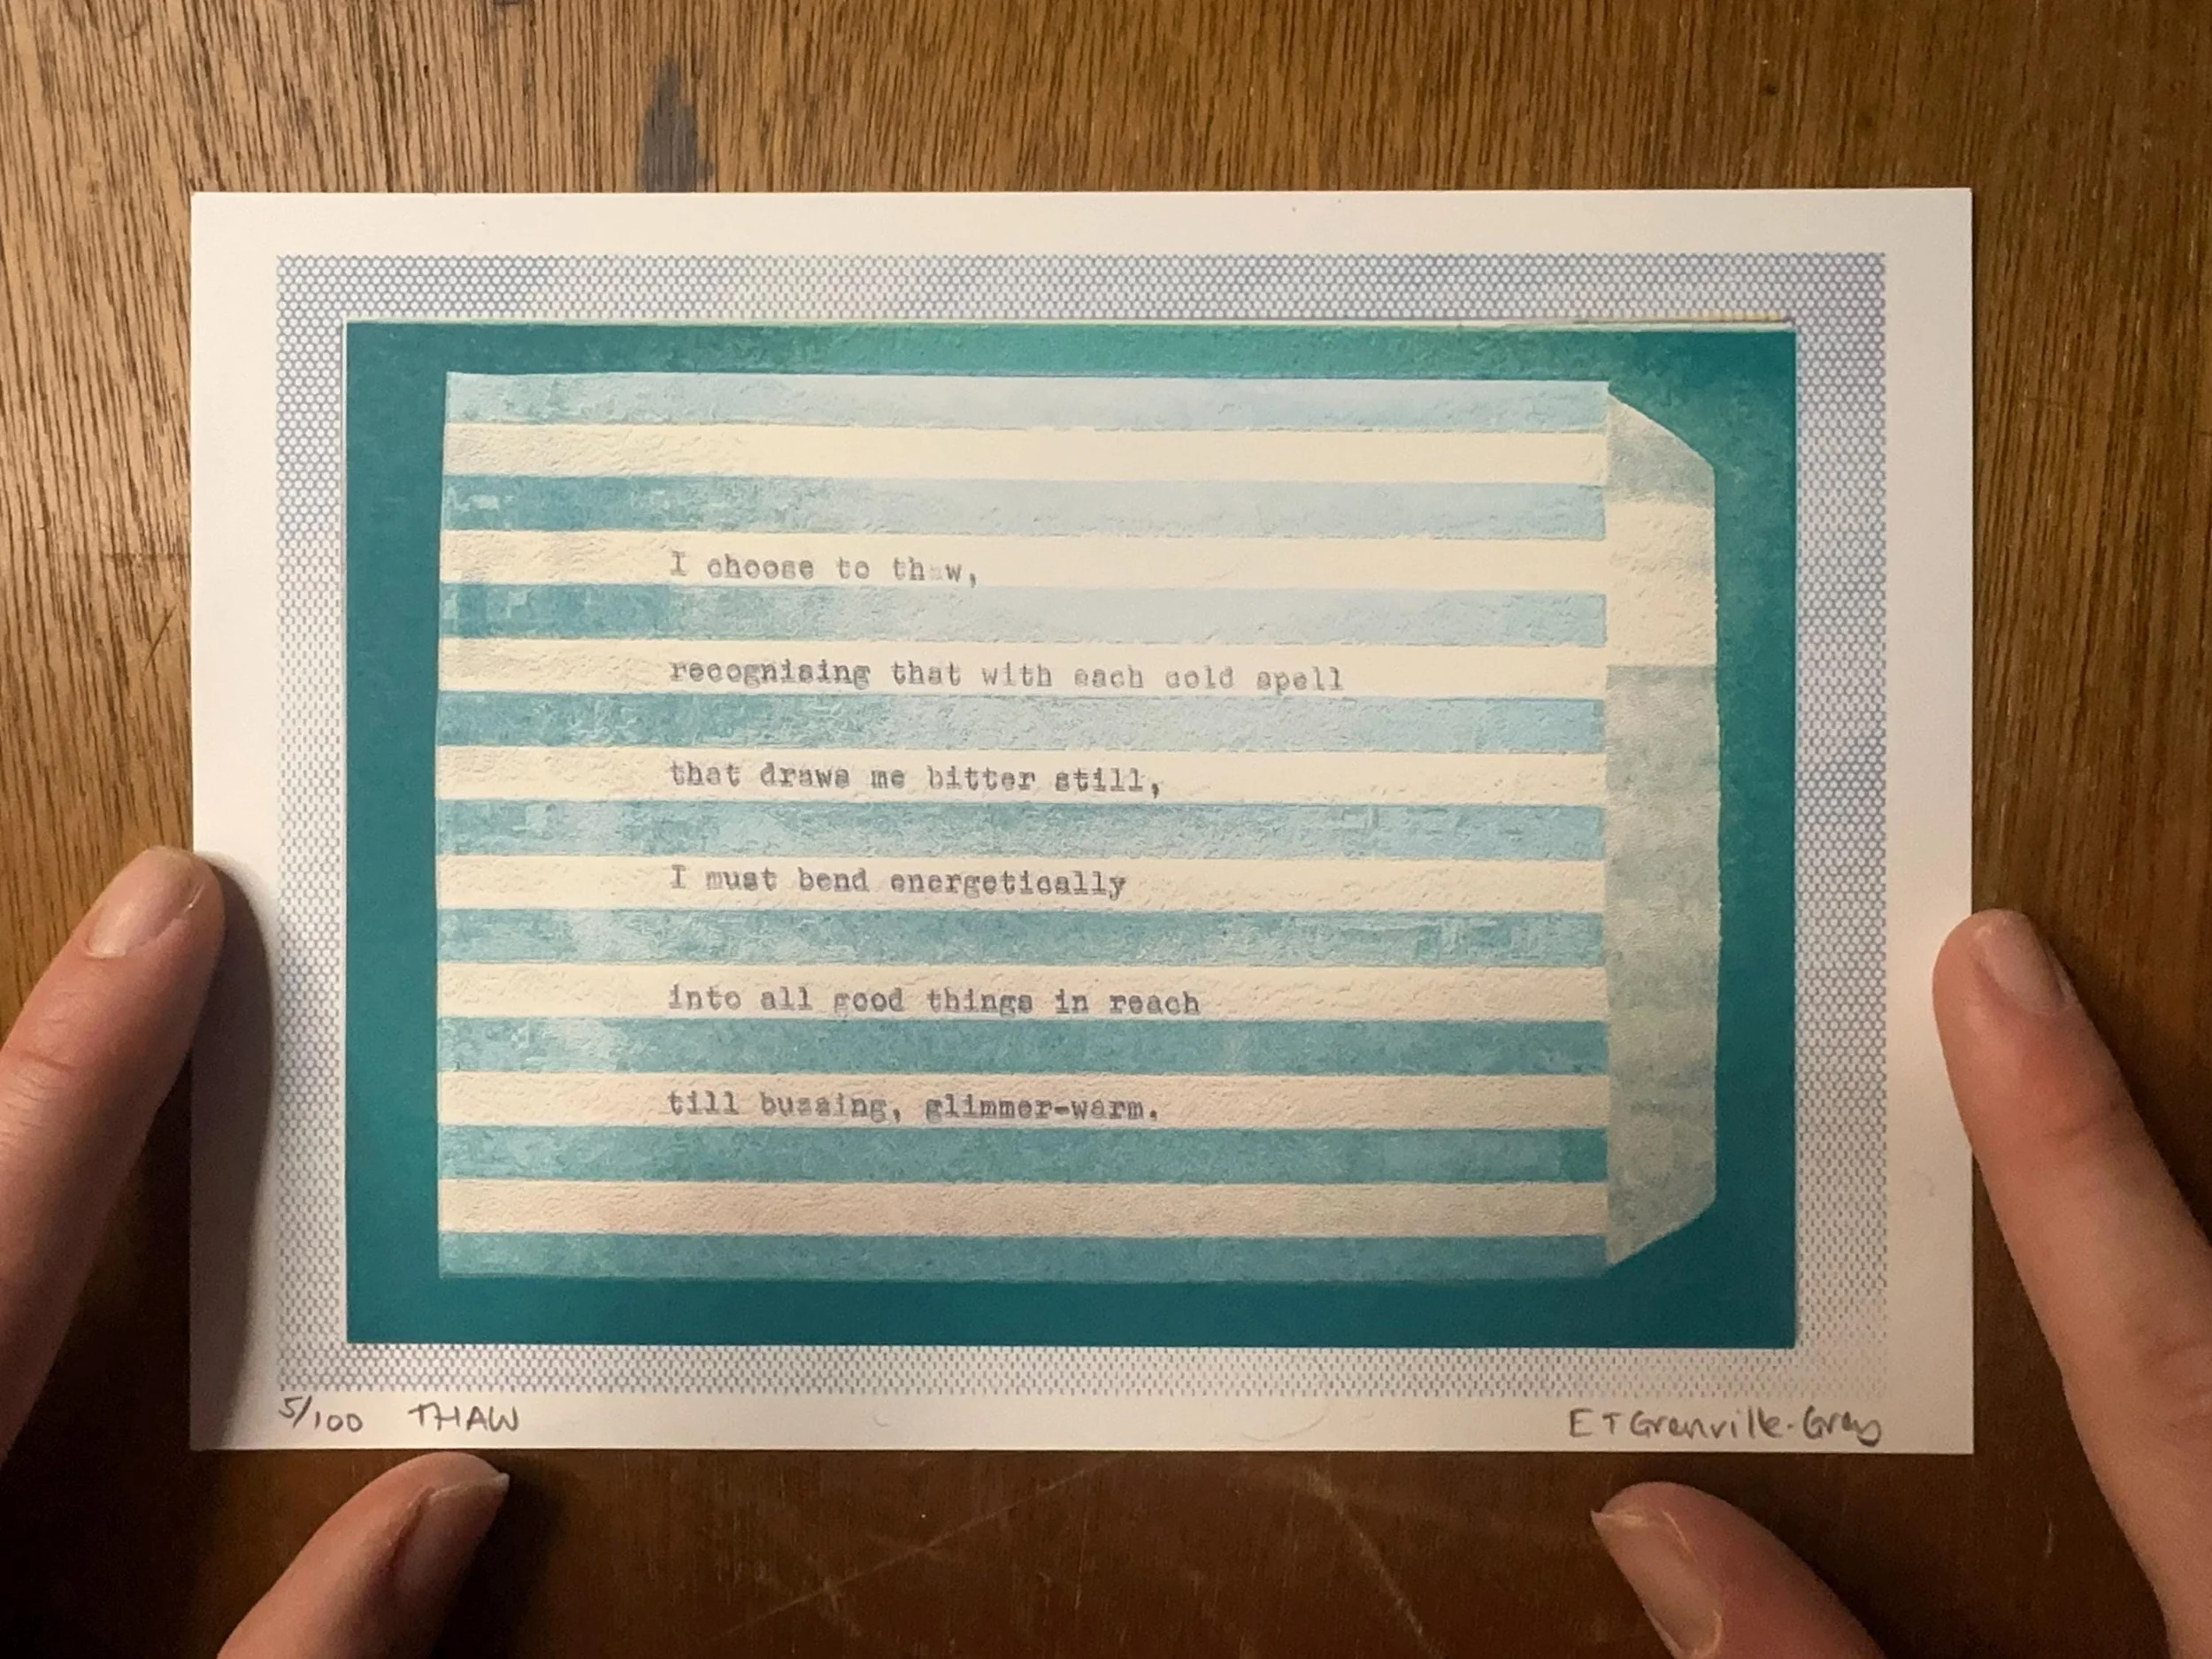 I choose to thaw,
recognising that with each cold spell
that draws me bitter still,
I must bend energetically
into all good things in reach
till buzzing, glimmer-warm.
5/100 THAW
E T Grenville-Gray